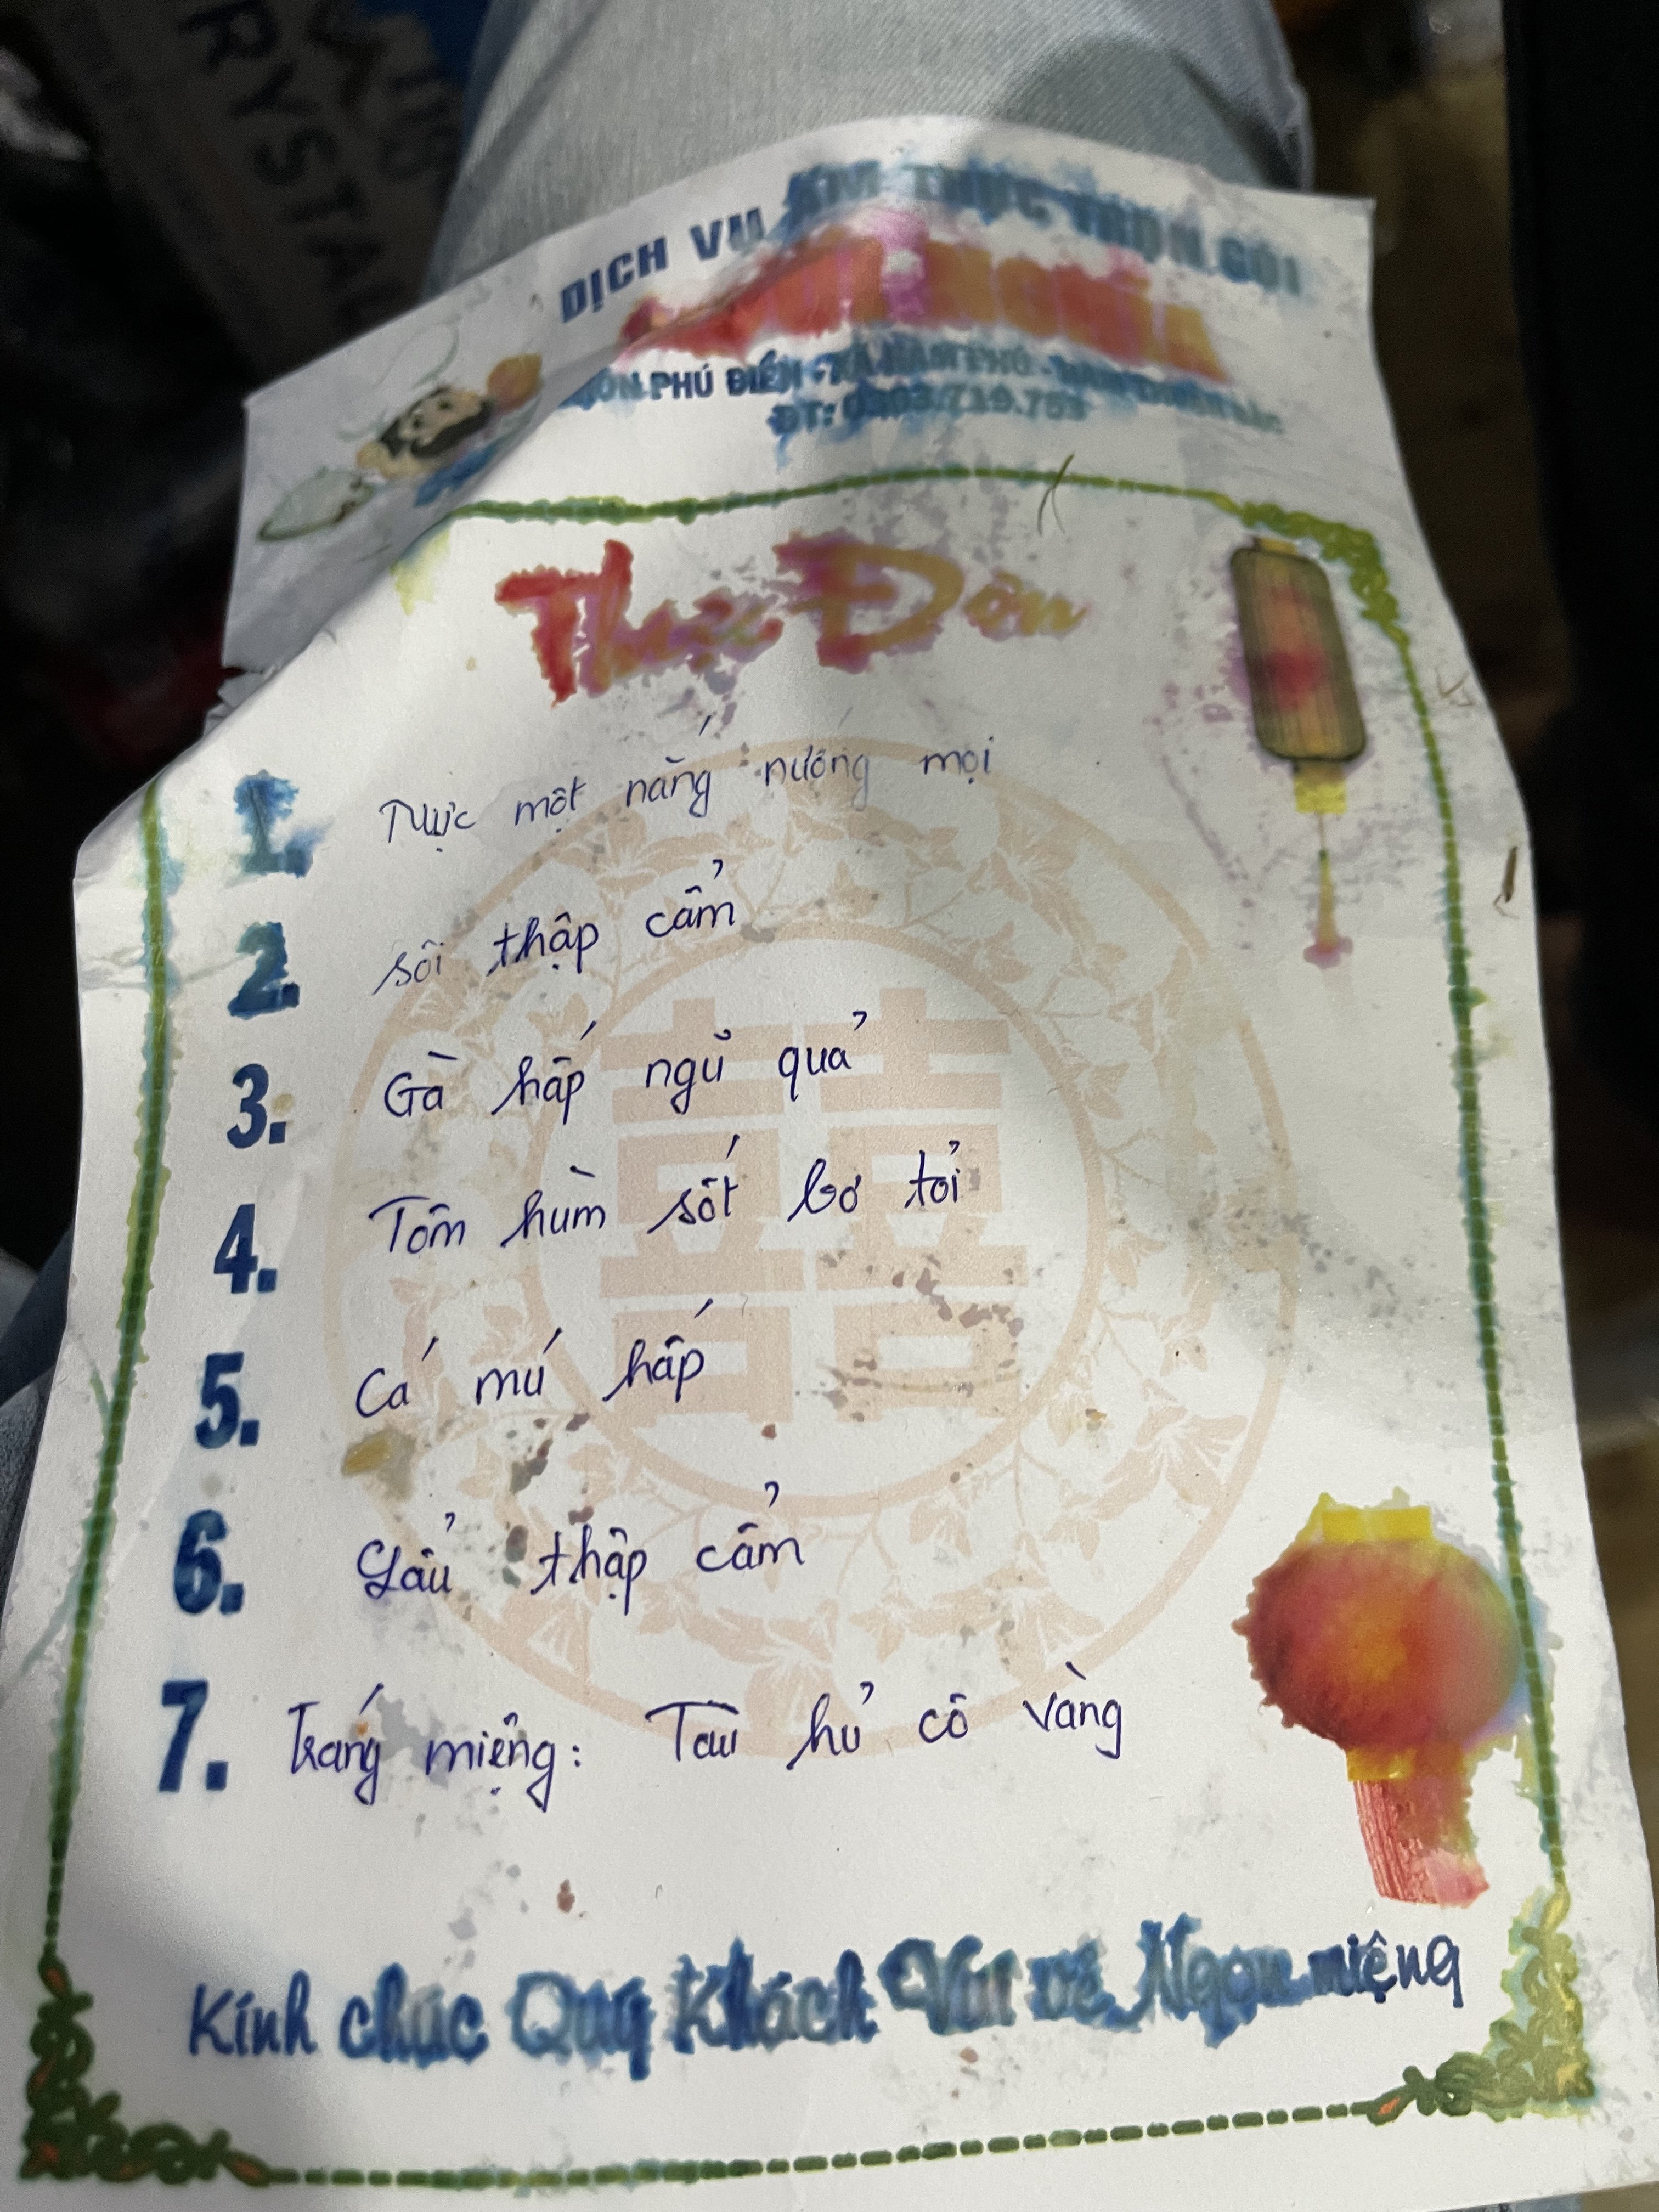 RYSTAL
DỊCH VỤ ẨM THỰC TRỌN GÓI
PHÚ ĐIỀN - XÃ
ĐT:
Thực Đơn
1. Mực một nắng nướng mọi
2. sôi thập cẩm
3. Gà hấp ngũ quả
4. Tôm hùm sốt bơ tỏi
5. Cá mú hấp
6. Lẩu thập cẩm
7. Tráng miệng: Tàu hủ cô vàng
Kính chúc Quý Khách Vui vẻ Ngon miệng